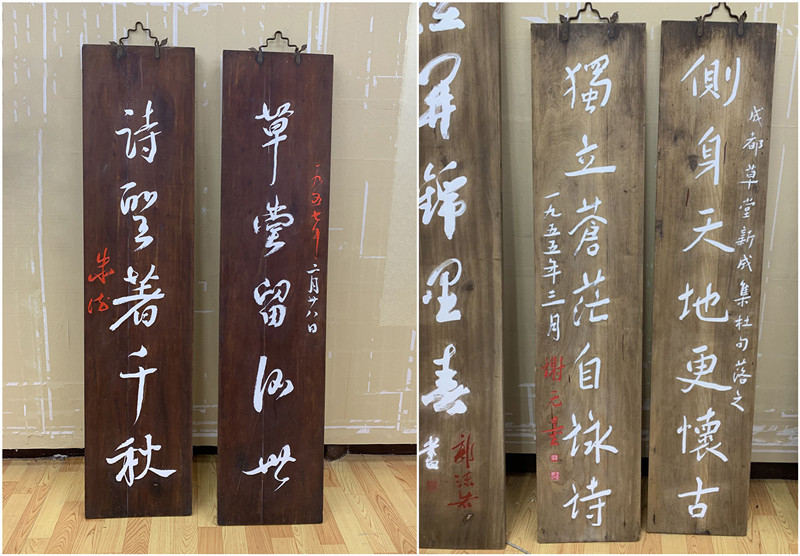 草堂留後世
一九五七年二月廿八日
詩聖著千秋
朱德
側身天地更懷古
成都草堂新成集杜句落之
獨立蒼茫自詠詩
一九五五年三月 謝无量
開錦里春
郭沫若
書